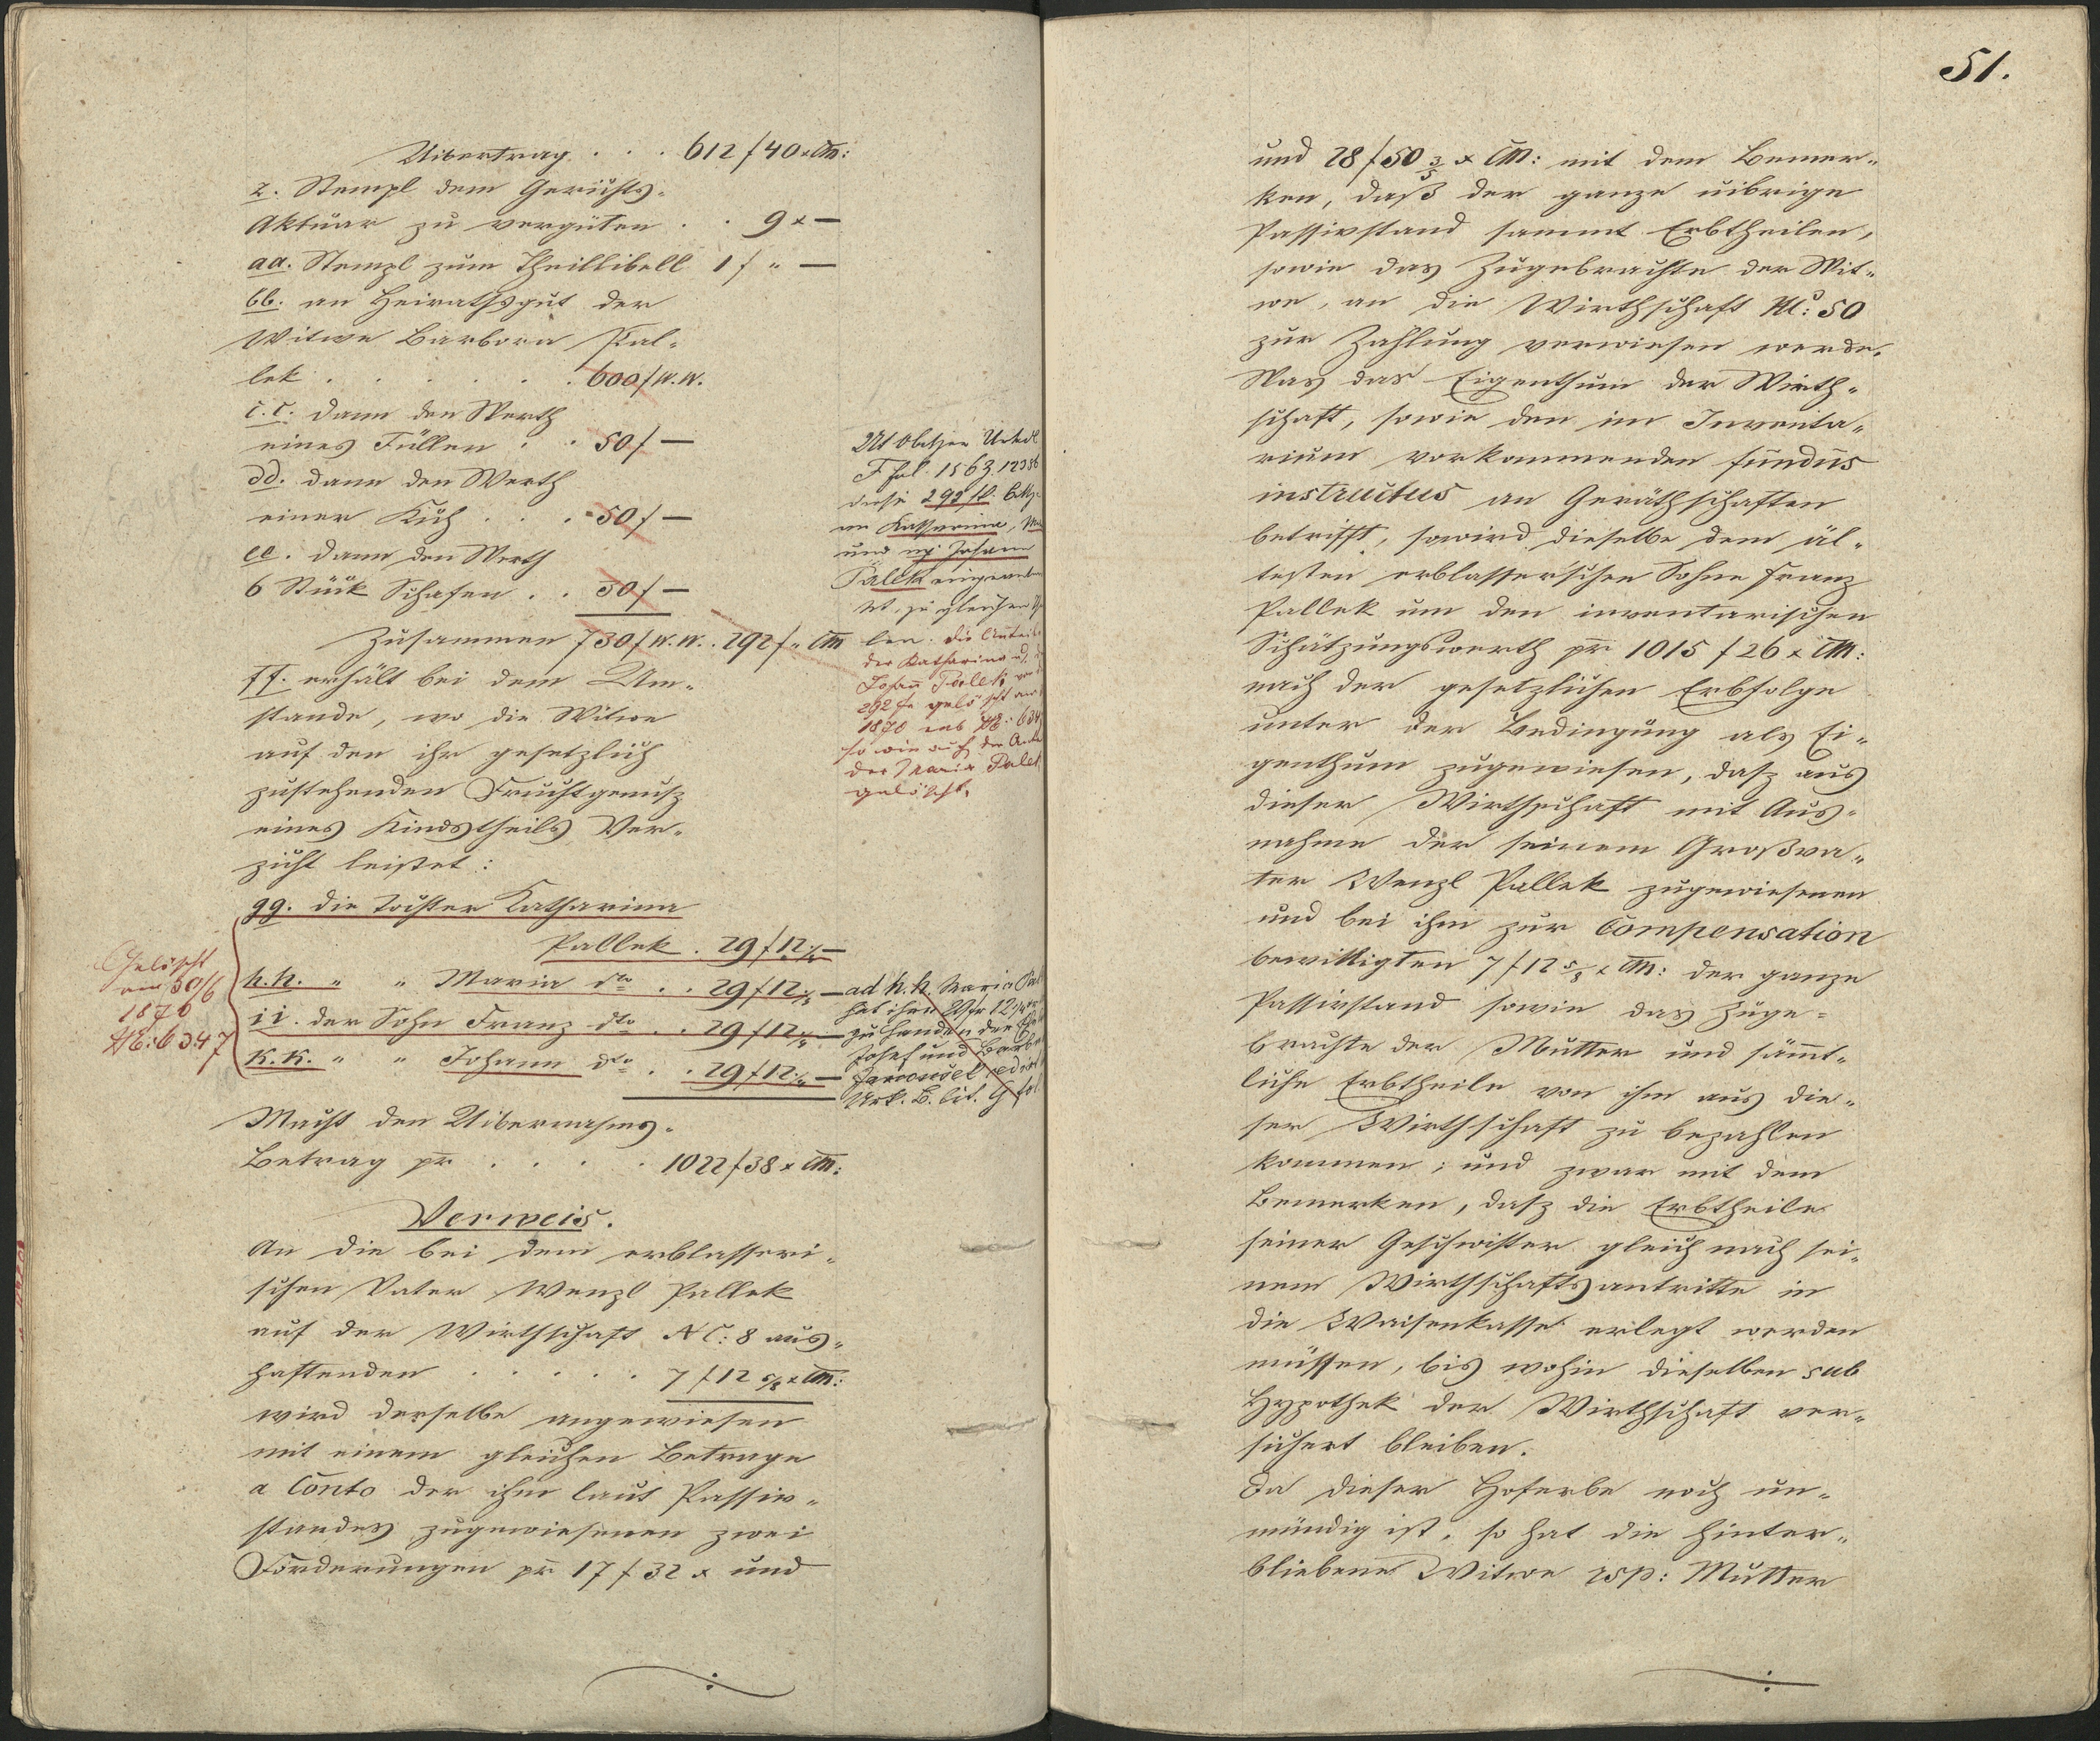 Uibertrag . . . 612 f 40 x CM:
z. Stempl dem Gerichts-
Aktuar zu vergüten . . 9 x —
aa. Stempl zum Theillibell 1 f " —
bb. an Heirathsgut der
Witwe Barbora Pal-
lek . . . . . . 600 f W.W.
c.c. dann den Werth
eines Füllen . . 50 f —
dd. dann den Werth
einer Kuh . . . 50 f —
ee. dann den Werth
6 Stück Schafen . . 30 f —
Zusammen 730 f W.W. . 292 f " CM
ff. erhält bei dem Um-
stande, wo die Witwe
auf den ihr gesetzlich
zustehenden Fruchtgenusz
eines Kindstheils Ver-
zicht leistet:
gg. die Tochter Katharina
Pallek . 29 f 12 —
h.h. " " Maria dto . . 29 f 12 —
ii. der Sohn Franz dto . . 29 f 12 —
k.k. " " Johann dto . . 29 f 12 —
Macht den Uibernahms-
Betrag pr . . . . 1022 f 38 x CM:
Verweis.
An die bei dem erblasseri-
schen Vater Wenzl Pallek
auf der Wirthschaft NC: 8 aus-
haftenden . . . . . 7 f 12 5/8 x CM:
wird derselbe angewiesen
mit einem gleichen Betrage
a Conto der ihm laut Passiv-
standes zugewiesenen zwei
Forderungen pr 17 f 32 x und
Gelöscht
am 30/6
1876
6347
F fol. 156
diese 292 fl.
an Katharina,
und Johann
Palek
zu gleichen
len. die Antei
der Katharina u.
Johann Palek
292 f gelöscht
1870
so wie auch der
der Maria Palek
gelöscht.
ad h.h. Maria Pal
hat ihre 29 fr 12
zu Handen der
Josef und Barb
Jarousek
Urk. B. lit. G fol.
51.
und 28 f 50 3/5 x CM: mit dem Bemer-
ken, daß der ganze uibrige
Passivstand sammt Erbtheilen,
sowie das Zugebrachte der Wit-
we, an die Wirthschaft NC: 50
zur Zahlung verwiesen werde.
Was das Eigenthum der Wirth-
schaft, sowie den im Inventa-
rium vorkommenden fundus
instructus an Geräthschaften
betrifft, so wird dieselbe dem äl-
testen erblasser'schen Sohne Franz
Pallek um den inventarischen
Schätzungswerth pr 1015 f 26 x CM:
nach der gesetzlichen Erbfolge
unter der Bedingung als Ei-
genthum zugewiesen, dasz aus
dieser Wirthschaft mit Aus-
nahme der seinem Großva-
ter Wenzl Pallek zugewiesenen
und bei ihm zur Compensation
bewilligten 7 f 12 5/8 x CM: der ganze
Passivstand sowie das Zuge-
brachte der Mutter und sämt-
liche Erbtheile von ihm aus die-
ser Wirthschaft zu bezahlen
kommen; und zwar mit dem
Bemerken, dasz die Erbtheile
seiner Geschwister gleich nach sei-
nem Wirthschaftsantritte in
die Waisenkasse erlegt werden
müssen, bis wohin dieselben sub
Hypothek der Wirthschaft ver-
sichert bleiben.
Da dieser Hoferbe noch un-
mündig ist, so hat die hinter-
bliebene Witwe rsp: Mutter